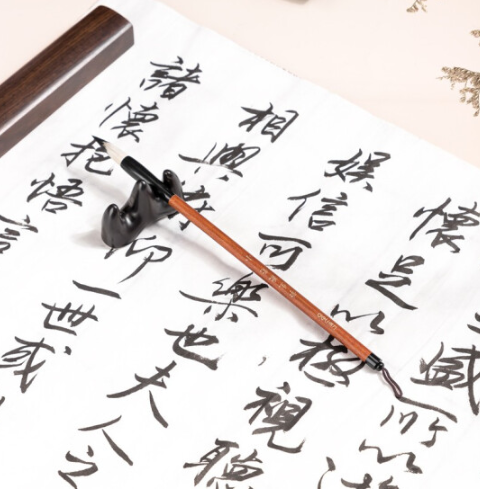 盛所以
懷足以極視聽
娛信可樂也夫人之
相與仰一世或
諸懷抱悟言